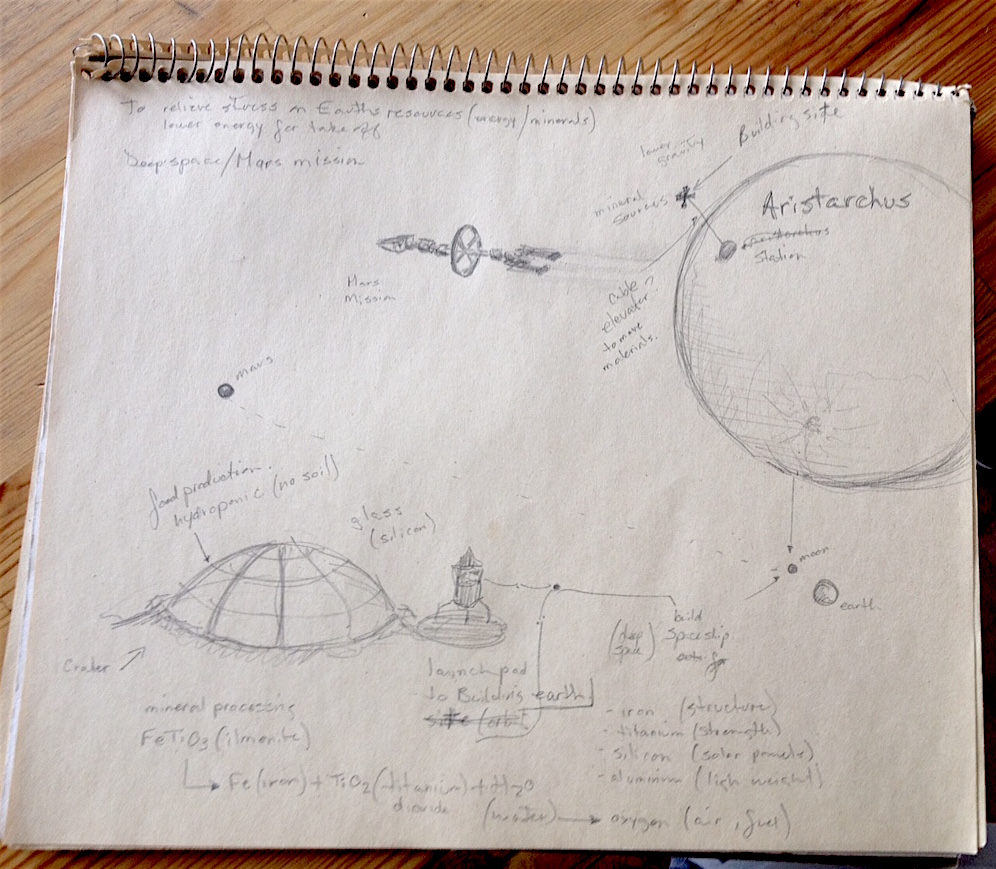 To relieve stress on Earths resources (energy/minerals)
lower energy for takeoff
Deep space/Mars mission
Building site
lower gravity
mineral sources
Aristarchus
Aristarchus
Station
Cable?
elevator
to move
materials.
Mars
Mission
mars
food production.
hydroponic (no soil)
glass
(silicon)
moon
earth
Crater
launch pad
to Building
site (orbit)
earth
build
(deep space) Spaceship
for
mineral processing
FeTiO3 (ilmenite)
Fe (iron) + TiO2 (titanium) + H2O
dioxide
(water) oxygen (air, fuel)
- iron (structure)
- titanium (strength)
- silicon (solar panels)
- aluminum (ligh weight)